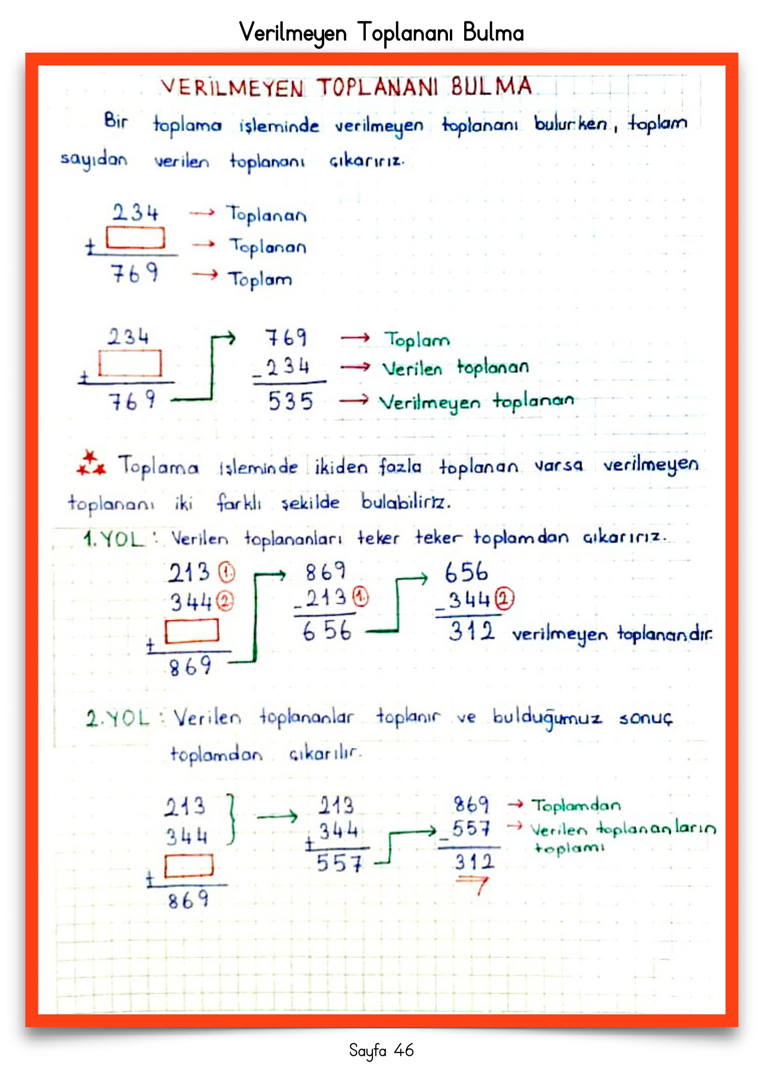 Verilmeyen Toplananı Bulma
VERİLMEYEN TOPLANANI BULMA
Bir toplama işleminde verilmeyen toplananı bulurken, toplam
sayıdan verilen toplananı çıkarırız.
234 → Toplanan
+ → Toplanan
769 → Toplam
234 769 → Toplam
+ -234 → Verilen toplanan
769 535 → Verilmeyen toplanan
Toplama işleminde ikiden fazla toplanan varsa verilmeyen
toplananı iki farklı şekilde bulabiliriz.
1.YOL: Verilen toplananları teker teker toplamdan çıkarırız.
213 1. 869 656
344 2 -213 1. -344 2
+ 656 312 verilmeyen toplanandır.
869
2.YOL: Verilen toplananlar toplanır ve bulduğumuz sonuç
toplamdan çıkarılır.
213 } → 213 869 → Toplamdan
344 +344 -557 → Verilen toplananların
toplamı
+ 557 312
869
Sayfa 46